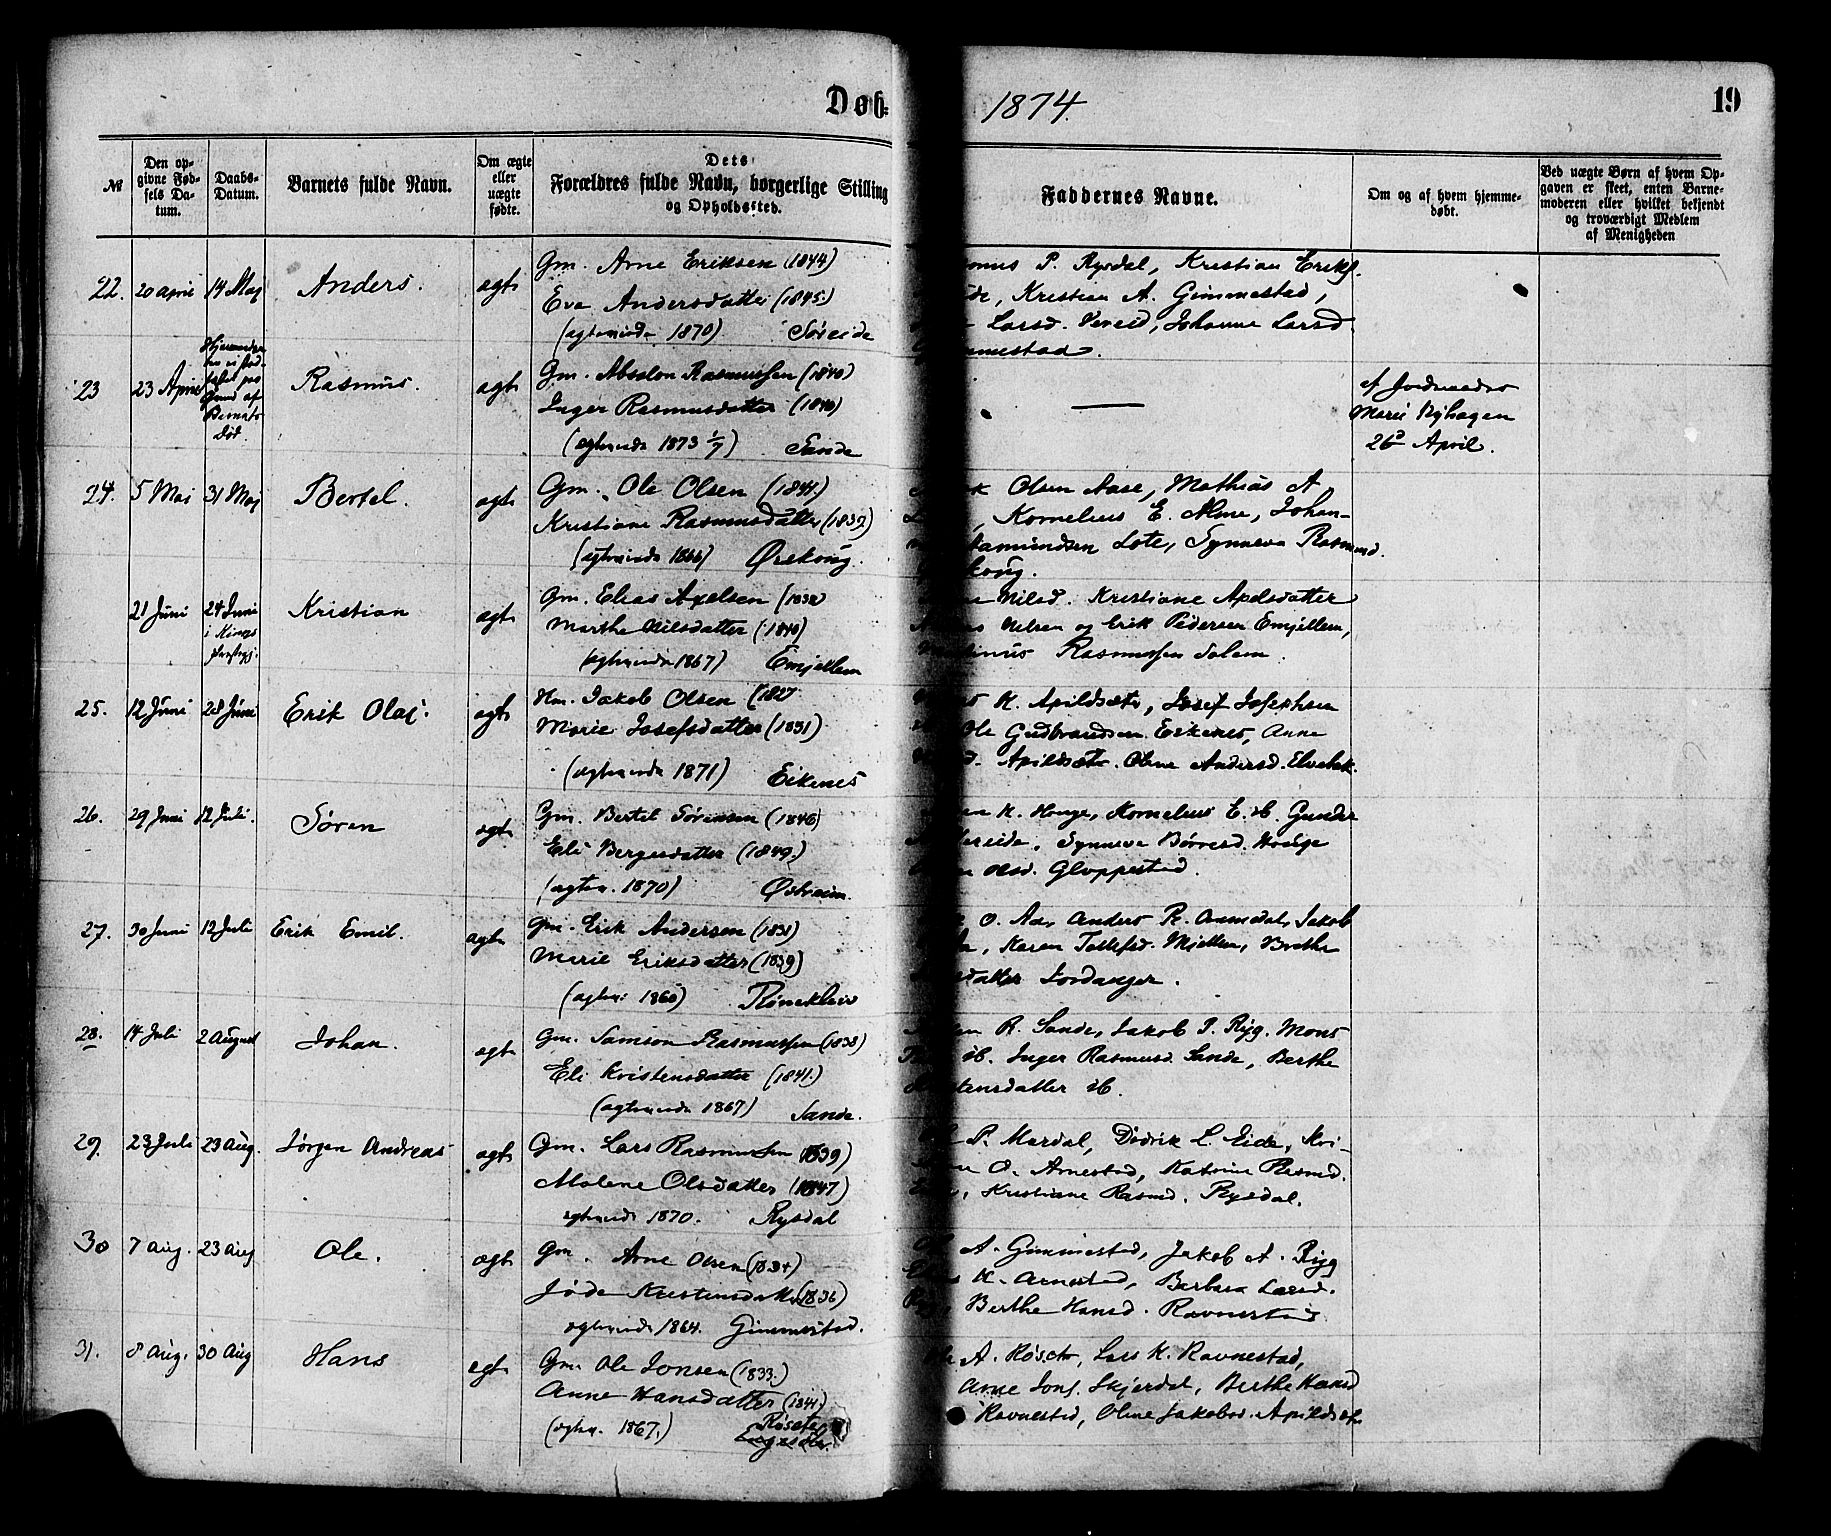 Døb-
1874.
19
№
Den op-
givne Fød-
sels Da-
tum.
Daabs-
Datum.
Barnets fulde Navn.
Om ægte
eller
uægte
fødte.
Dets
Forældres fulde Navn, borgerlige Stilling
og Opholdssted.
Faddernes Navne.
Om og af hvem hjemme-
døbt.
Ved uægte Børn af hvem Op-
gaven er skeet, enten Barne-
moderen eller hvilket bekjendt
og troværdigt Medlem
af Menigheden
22. 20 April 14 Maj Anders. ægt.
Gm. Arne Eriksen (1844)
Eva Andersdatter (1845.)
(ægteviede 1870) Søreide
P. Rysdal, Kristian Eriks.
Kristian A. Gimmestad,
Larsd. Vereid, Johanne Larsd.
23 23 April Rasmus. ægt.
grund af
Barnets
Død.
Gm. Absalon Rasmussen (1840)
Inger Rasmusdatter (1840)
(ægteviede 1873 1/7) Sande
—
af Jordmoder
Marie Nyhagen
26d April.
24. 5 Mai 31 Maj Bertel. ægt.
Gm. Ole Olsen (1841.)
Kristiane Rasmusdatter (1837)
(ægteviede 1866) Ørekoug.
Olsen Aase, Mathias A.
Kornelius E. Alme, Johan-
Lote, Synneva Rasmusd.
21 Juni 24 Juni Kristian ægt.
Gm. Elias Axelsen (1838)
Marthe Nilsdatter (1840)
(ægteviede 1867) Emjellem
Nilsd. Kristiane Apelsdatter
Nelsen og Erik Pedersen Emjellem,
Rasmussen Solem.
25. 12 Juni 28 Juni Erik Olai. ægt.
Hm. Jakob Olsen (1827
Marie Josefsdatter (1831)
(ægteviede 1871) Eikenes
K. Apildsæter, Josef Josephsen
Ole Gudbrandsen Eikenes, Anne
Apildsæter. Oline Andersd. Elvebak.
26. 29 Juni 12 Juli. Søren ægt.
Gm. Bertel Sørensen (1846)
Eli Bergesdatter (1849.)
(ægtev. 1870) Østreim.
K. Houge, Kornelius E. ib. Gunder
Synneva Børresd. Houge
Olsd. Gloppestad.
27. 30 Juni 12 Juli Erik Emil. ægte
Gm. Erik Andersen (1831)
Marie Eriksdatter (1839)
(ægtev. 1860) Rønekleiv
O. Aa, Anders R. Aamdal, Jakob
Karen Tollefsd. Mjellem, Berthe
28. 14 Juli 2 August Johan. ægt.
Gm. Samson Rasmussen (1838)
Eli Kristensdatter (1841.)
(ægteviede 1867) Sande.
R. Sande, Jakob P. Ryg. Mons
ib. Inger Rasmusd. Sande, Berthe
ib.
29. 23 Juli 23 Aug. Jørgen Andreas ægt.
Gm. Lars Rasmussen (1839)
Malene Olsdatter (1847)
ægteviede 1870. Rysdal
P. Mardal, Didrik L. Eide, Kri-
O. Arnestad, Katrine Rasmd.
Kristiane Rasmd. Rysdal.
30 7 Aug. 23 Aug Ole. ægt.
Gm. Arne Olsen (1834)
Jøda Kristensdatter (1836)
ægteviede 1864. Gimmestad.
A. Gimmestad, Jakob A. Ryg
K. Arnestad, Barbara Larsd.
Berthe Hansd. Ravnestad
31. 8 Aug. 30 Aug Hans ægt.
Gm. Ole Jonsen (1833.)
Anne Hansdatter (1844)
(ægtev. 1867.) Røsæter
A. Røsæter, Lars K. Ravnestad,
Arne Jons. Skjerdal, Berthe Hansd
Ravnestad, Oline Jakobsd. Apildsæter